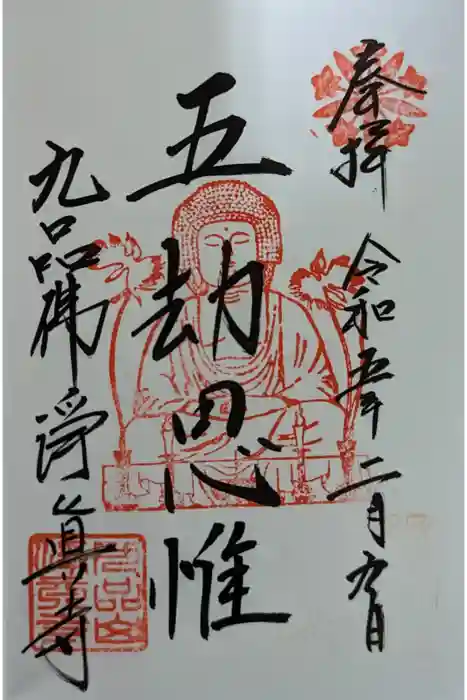 奉拝
令和五年二月九日
五劫思惟
九品佛 浄真寺